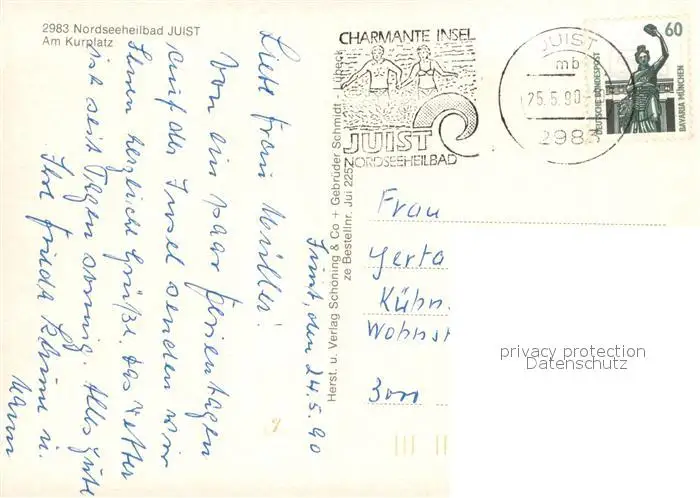 2983 Nordseeheilbad JUIST
Am Kurplatz
Juist, den 24.5.90
Liebe Frau Müller!
Von ein paar Ferientagen
auf der Insel senden wir
Ihnen herzliche Grüße. Das Wetter
ist seit Tagen sonnig. Alles Gute
Ihre Frieda u.
Mann
Herst. u. Verlag Schöning & Co + Gebrüder Schmidt - Lübeck
ze Bestellnr. Jui 2257
CHARMANTE INSEL
JUIST
NORDSEEHEILBAD
JUIST
mb
25.5.90
2983
60
DEUTSCHE BUNDESPOST
BAVARIA MÜNCHEN
Frau
Gerta
Kühn
Wohnst
privacy protection
Datenschutz